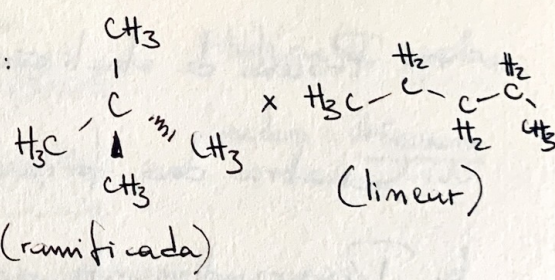 :
CH3
C
H3C
CH3
CH3
(ramificada)
x
H3C
H2
C
C
H2
H2
C
CH3
(linear)